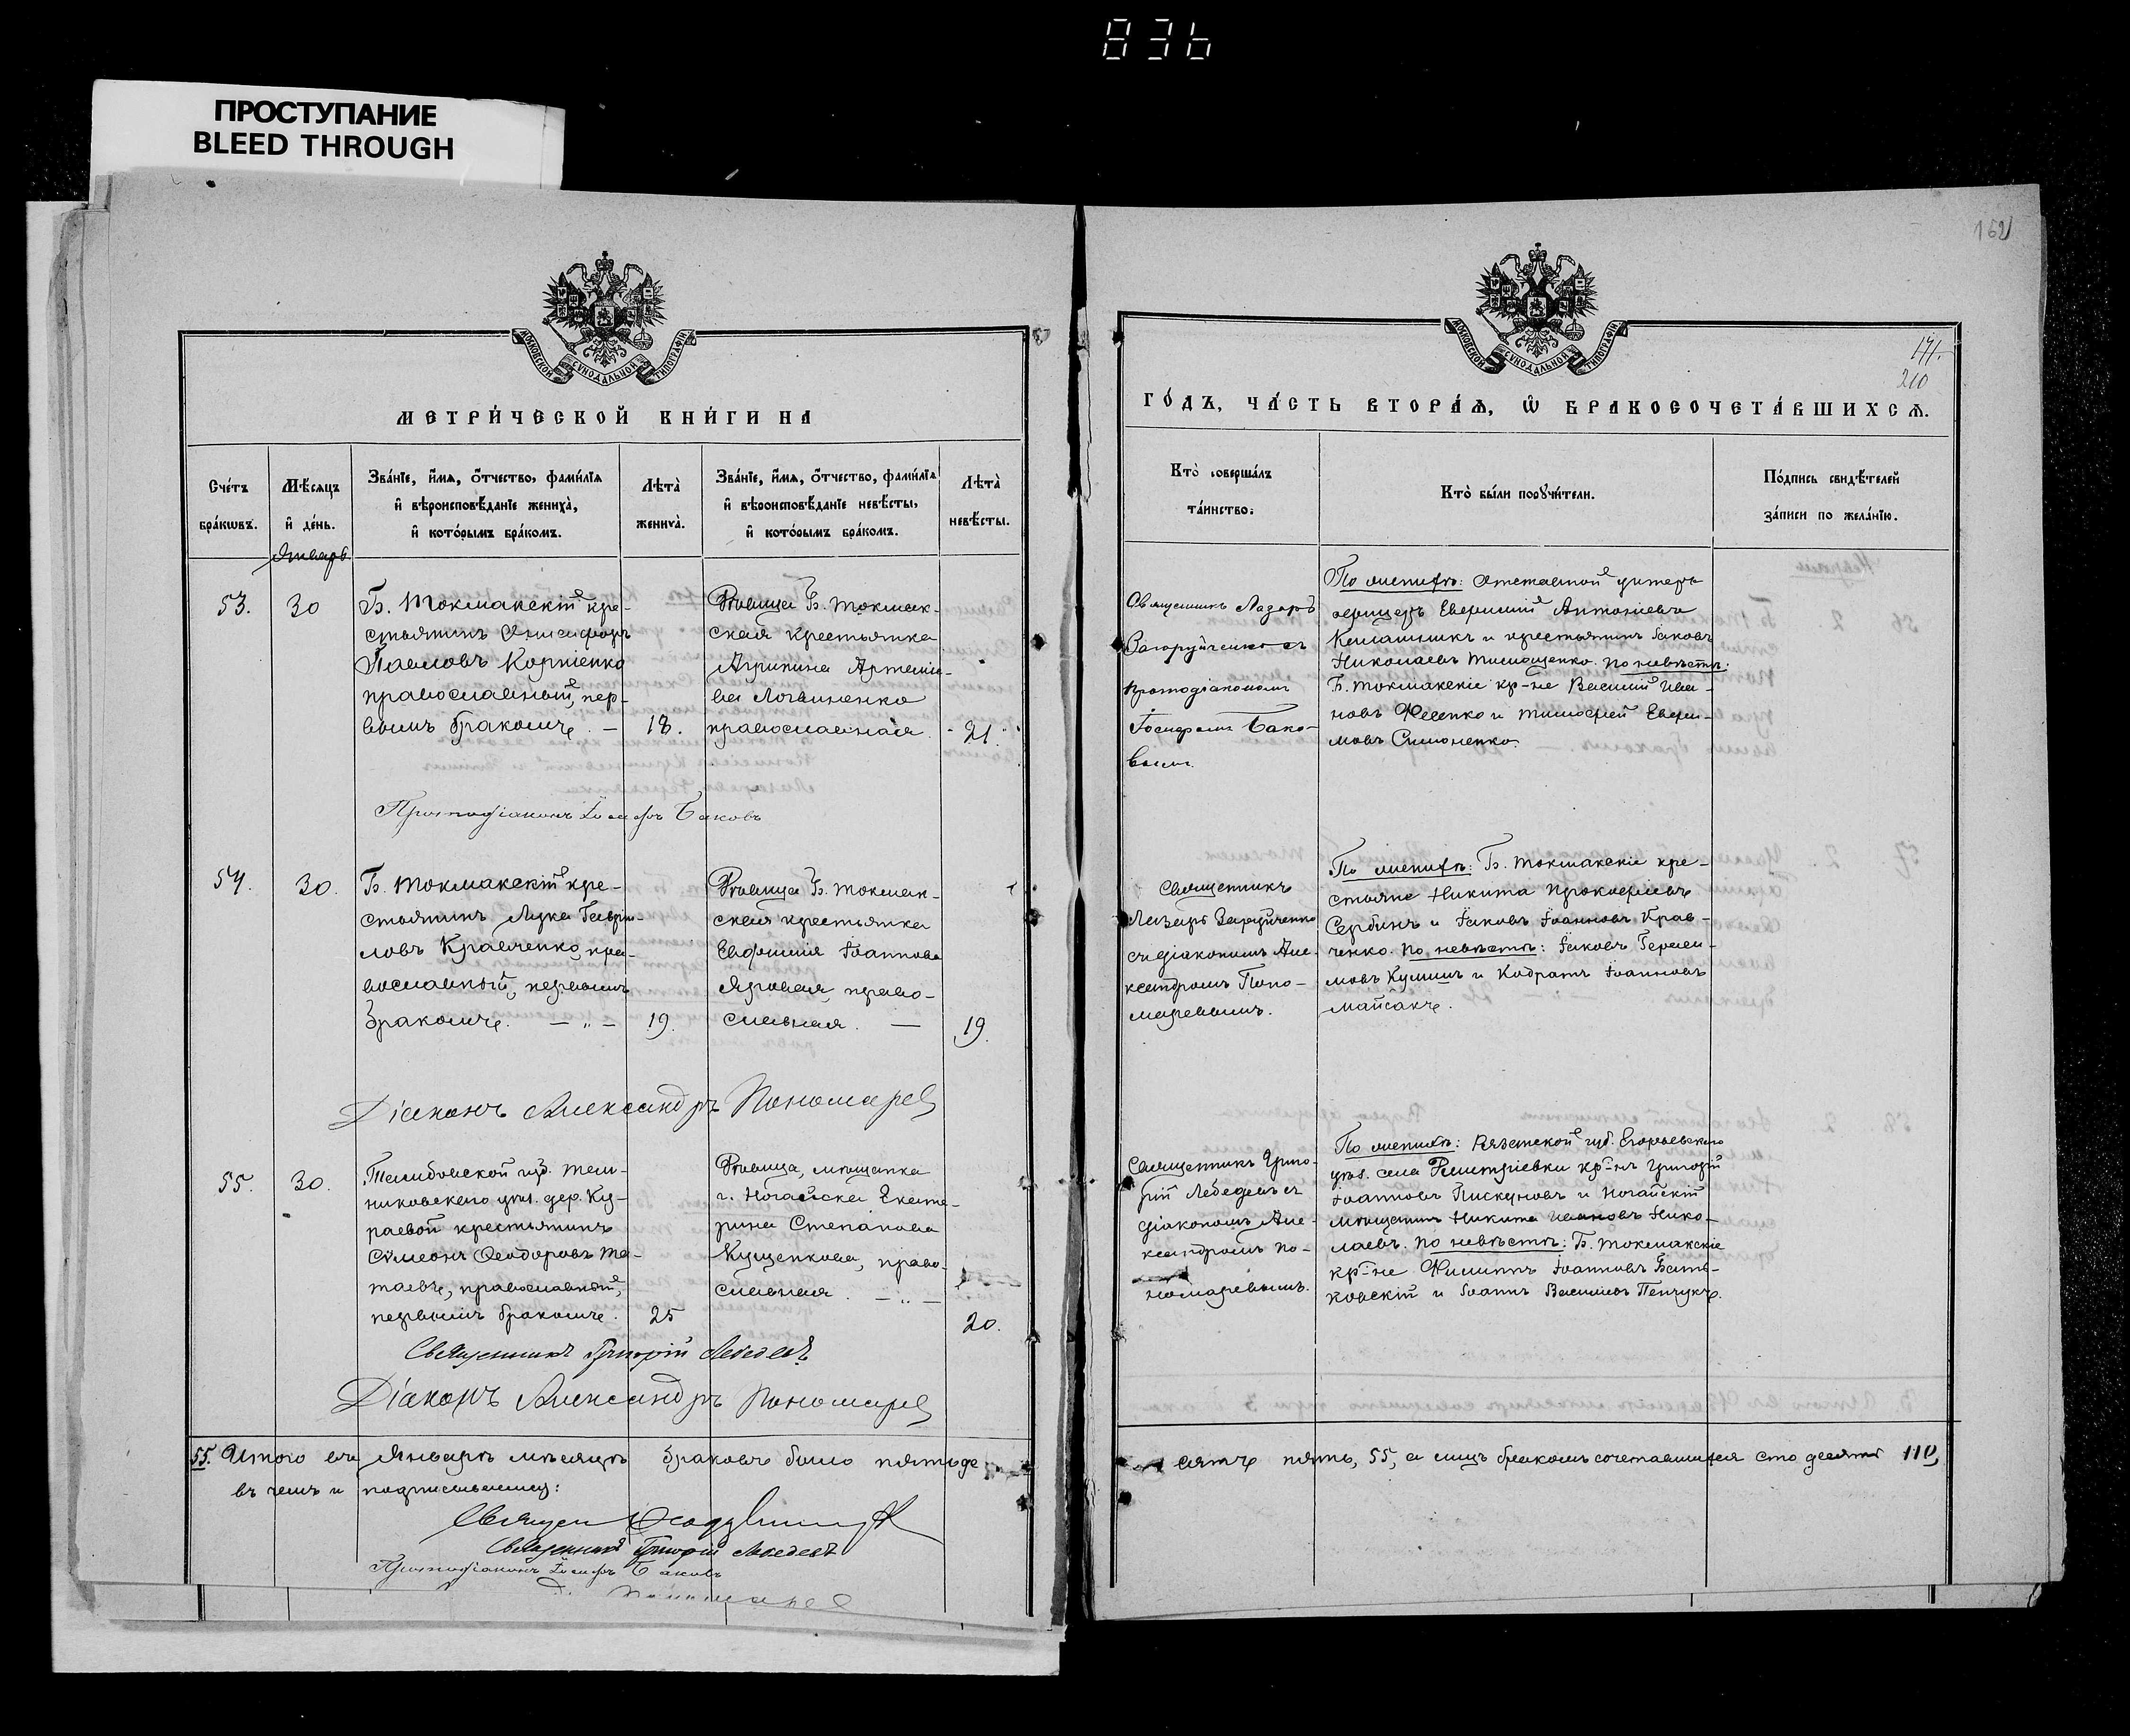 836
ПРОСТУПАНИЕ
BLEED THROUGH
162
171.
210
МОСКОВСКОЙ СѴНОДАЛЬНОЙ ТИПОГРАФІИ
МОСКОВСКОЙ СѴНОДАЛЬНОЙ ТИПОГРАФІИ
МЕТРИ́ЧЕСКОЙ КНИ́ГИ НА
ГО́ДЪ, ЧА́СТЬ ВТОРА́Ѧ, Ѡ БРАКОСОЧЕТА́ВШИХСѦ.
Сче́тъ
бра́кωвъ.
Мѣ́сяцъ
и де́нь.
Зва́нїе, и́мѧ, о́тчество, фами́лїѧ
и вѣроисповѣ́данїе жениха̀,
и кото́рымъ бра́комъ.
Лѣта̀
жениха̀.
Зва́нїе, и́мѧ, о́тчество, фами́лїѧ
и вѣроисповѣ́данїе невѣ́сты,
и кото́рымъ бра́комъ.
Лѣта̀
невѣ́сты.
Кто̀ соверша́лъ
та́инство.
Кто̀ бы́ли порꙋчи́тели.
По́дпись свидѣ́телей
за́писи по жела́нїю.
Январь
53.
30
Б. Токмакскій кре-
стьянинъ Онисифоръ
Павловъ Корніенко
православный, пер-
вымъ бракомъ. —
18.
Дѣвица Б. Токмак-
ская крестьянка
Агрипина Артеміе-
ва Логвиненко
православная.
21.
Священникъ Лазарь
Загоруйченко съ
протодіакономъ
Іосифомъ Бако-
вымъ.
По женихѣ: отставной унтеръ
офицеръ Евфимій Антоніевъ
Калашникъ и крестьянинъ Іаковъ
Николаевъ Тимощенко. По невѣстѣ:
Б. Токмакскіе кр-не Василій Ива-
новъ Фесенко и Тимофей Евфи-
мовъ Симоненко.
Протодіаконъ Іосифъ Баковъ
54.
30.
Б. Токмакскій кре-
стьянинъ Лука Гаврі-
ловъ Кравченко, пра-
вославный, первымъ
бракомъ. — " —
19.
Дѣвица Б. Токмак-
ская крестьянка
Евфимія Іоаннова
Яровая, право-
славная. —
19.
Священникъ
Лазарь Загоруйченко
съ діакономъ Але-
ксандромъ Поно-
маревымъ.
По женихѣ: Б. Токмакскіе кре-
стьяне Никита Прокофіевъ
Сербинъ и Іаковъ Іоанновъ Крав-
ченко. По невѣстѣ: Іаковъ Гераси-
мовъ Кулишъ и Кодратъ Іоанновъ
Майсакъ.
Діаконъ Александръ Пономарев
55.
30.
Тамбовской губ. Тем-
никовскаго уѣз. дер. Ку-
раевой крестьянинъ
Сѵмеонъ Ѳеодоровъ Та-
таевъ, православный,
первымъ бракомъ.
25
Дѣвица, мѣщанка
г. Ногайска Екате-
рина Степанова
Кущенкова, право-
славная. — " —
20.
Священникъ Григо-
рій Лебедевъ съ
діакономъ Але-
ксандромъ По-
номаревымъ.
По женихѣ: Рязанской губ. Егорьевскаго
уѣз. села Дмитріевки кр-нъ Григорій
Іоанновъ Пискуновъ и Ногайскій
мѣщанинъ Никита Ивановъ Нико-
лаевъ. По невѣстѣ: Б. Токмакскіе
кр-не Филиппъ Іоанновъ Бать-
ковскій и Іоаннъ Василіевъ Пенчукъ.
Священникъ Григорій Лебедевъ
Діаконъ Александръ Пономарев
55. Итого въ Январѣ мѣсяцѣ браковъ было пятьде
сятъ пять, 55, а лицъ бракомъ сочетавшихся сто десять 110,
въ чемъ и подписываемся:
Священникъ Григорій Лебедевъ
Протодіаконъ Іосифъ Баковъ
Д. Пономарев